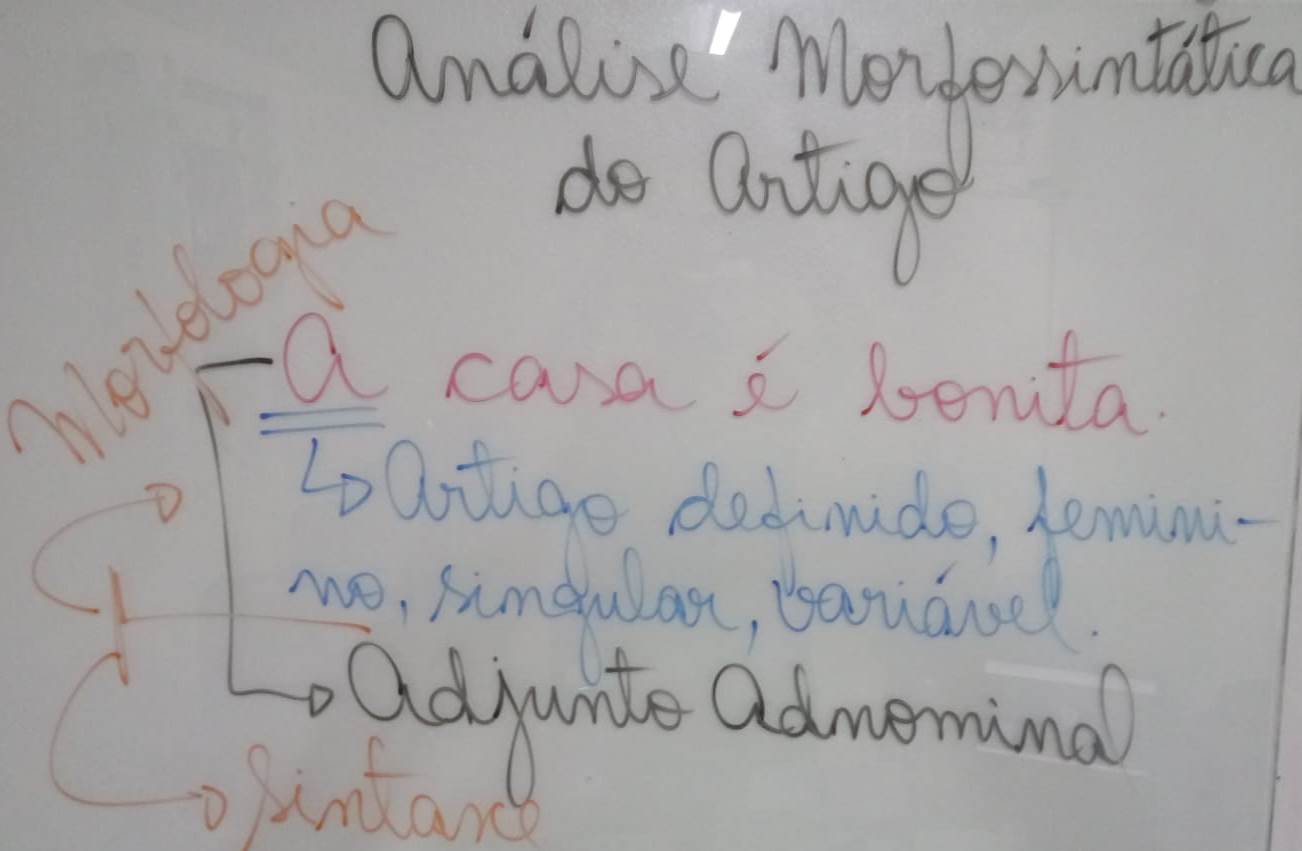 Análise Morfossintática
do Artigo
Morfologia
A casa é bonita.
Artigo definido, femini-
no, singular, variável.
Adjunto Adnominal
Sintaxe